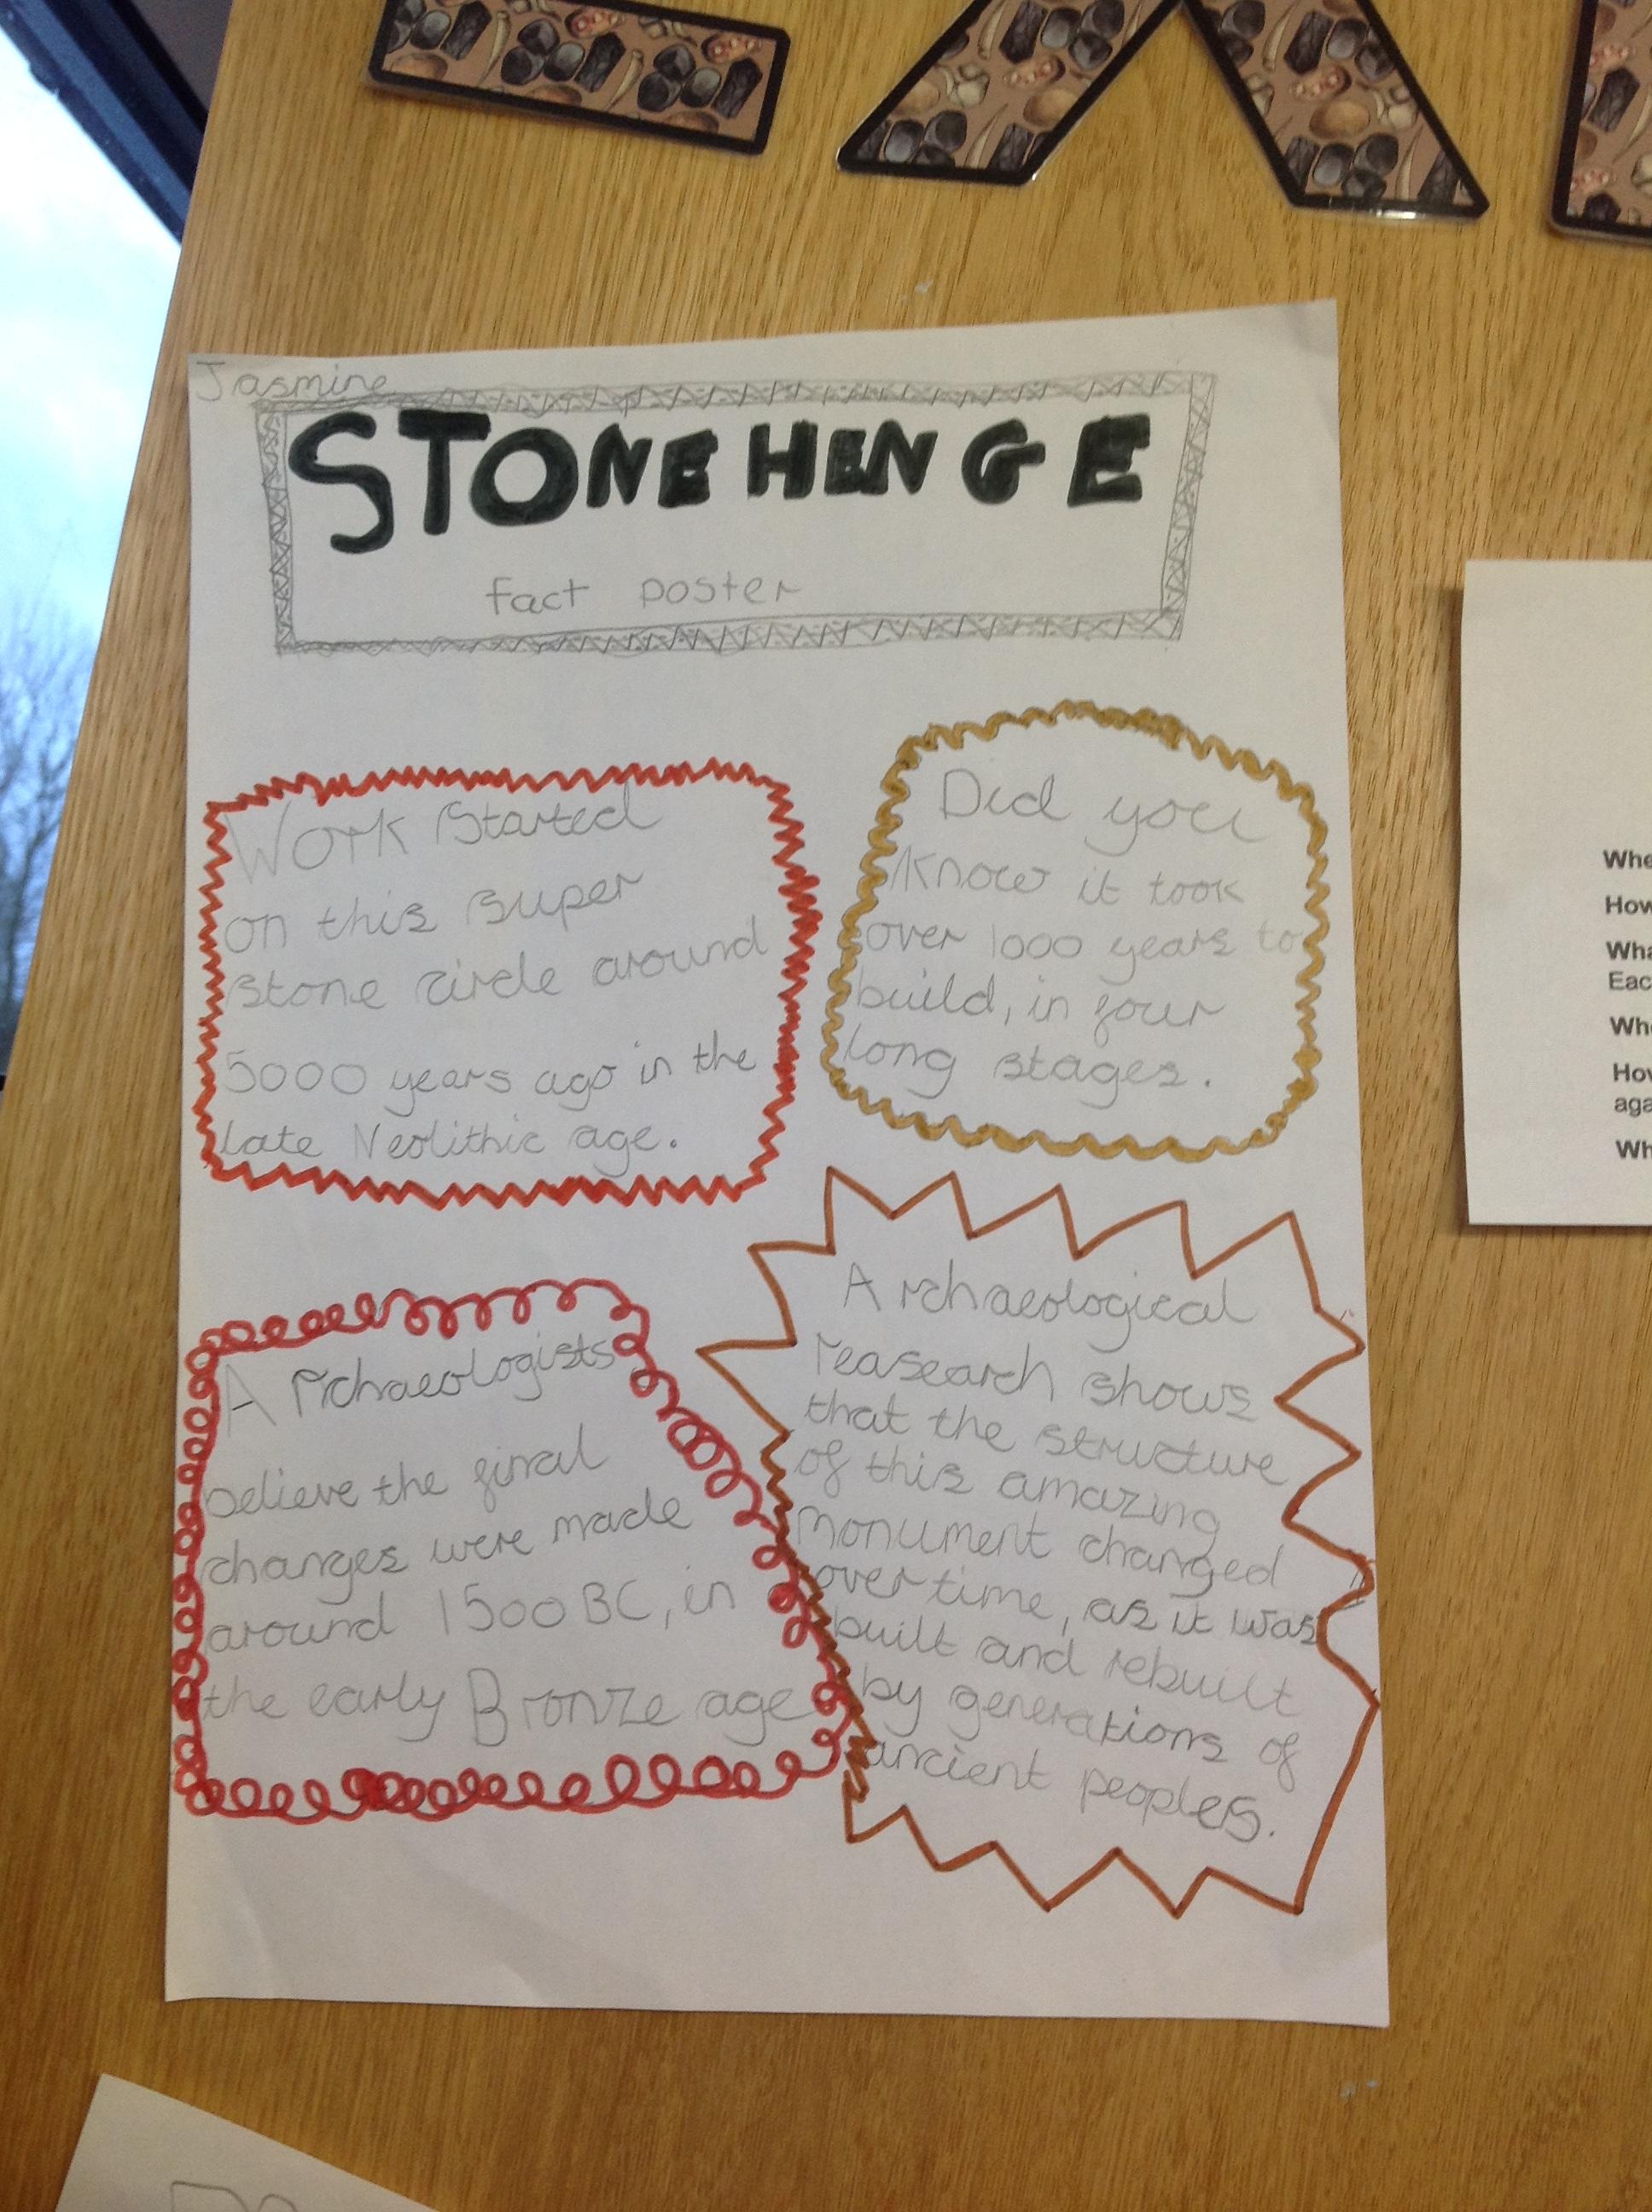 Jasmine
STONEHENGE
fact poster
Work Started
on this super
stone circle around
5000 years ago in the
late Neolithic age.
Did you
Know it took
over 1000 years to
build, in four
long stages.
Archaeologists
believe the final
changes were made
around 1500 BC, in
the early Bronze age
Archaeological
reasearch shows
that the structure
of this amazing
monument changed
over time, as it was
built and rebuilt
by generations of
ancient peoples.
Whe
How
Wha
Eac
Whe
How
aga
Wh